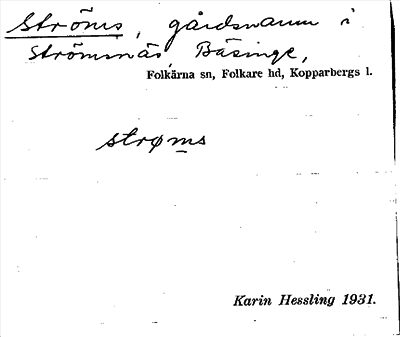 Ströms, gårdsnamn i
Strömsnäs, Bäsinge,
Folkärna sn, Folkare hd, Kopparbergs l.
strøms
Karin Hessling 1931.